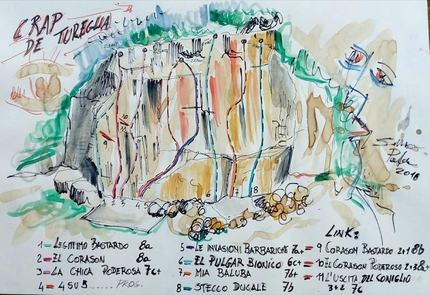 CRAP
DE TUREGLIA
2018
1 2 3 4
7 8
LINK:
1 - LEGITTIMO BASTARDO 8a
2 - EL CORASON 8a
3 - LA CHICA PODEROSA 7c+
4 - 4SUB..... PROG.
5 - LE INVASIONI BARBARICHE 7a+
6 - EL PULGAR BIONICO 6c+
7 - MIA BALUBA 7b+
8 - STECCO DUCALE 7b
9 CORASON BASTARDO 2+1 8b
10 EL CORASON PODEROSO 2+3 8a+
11 L'USCITA DEL CONIGLIO
3+2 7c